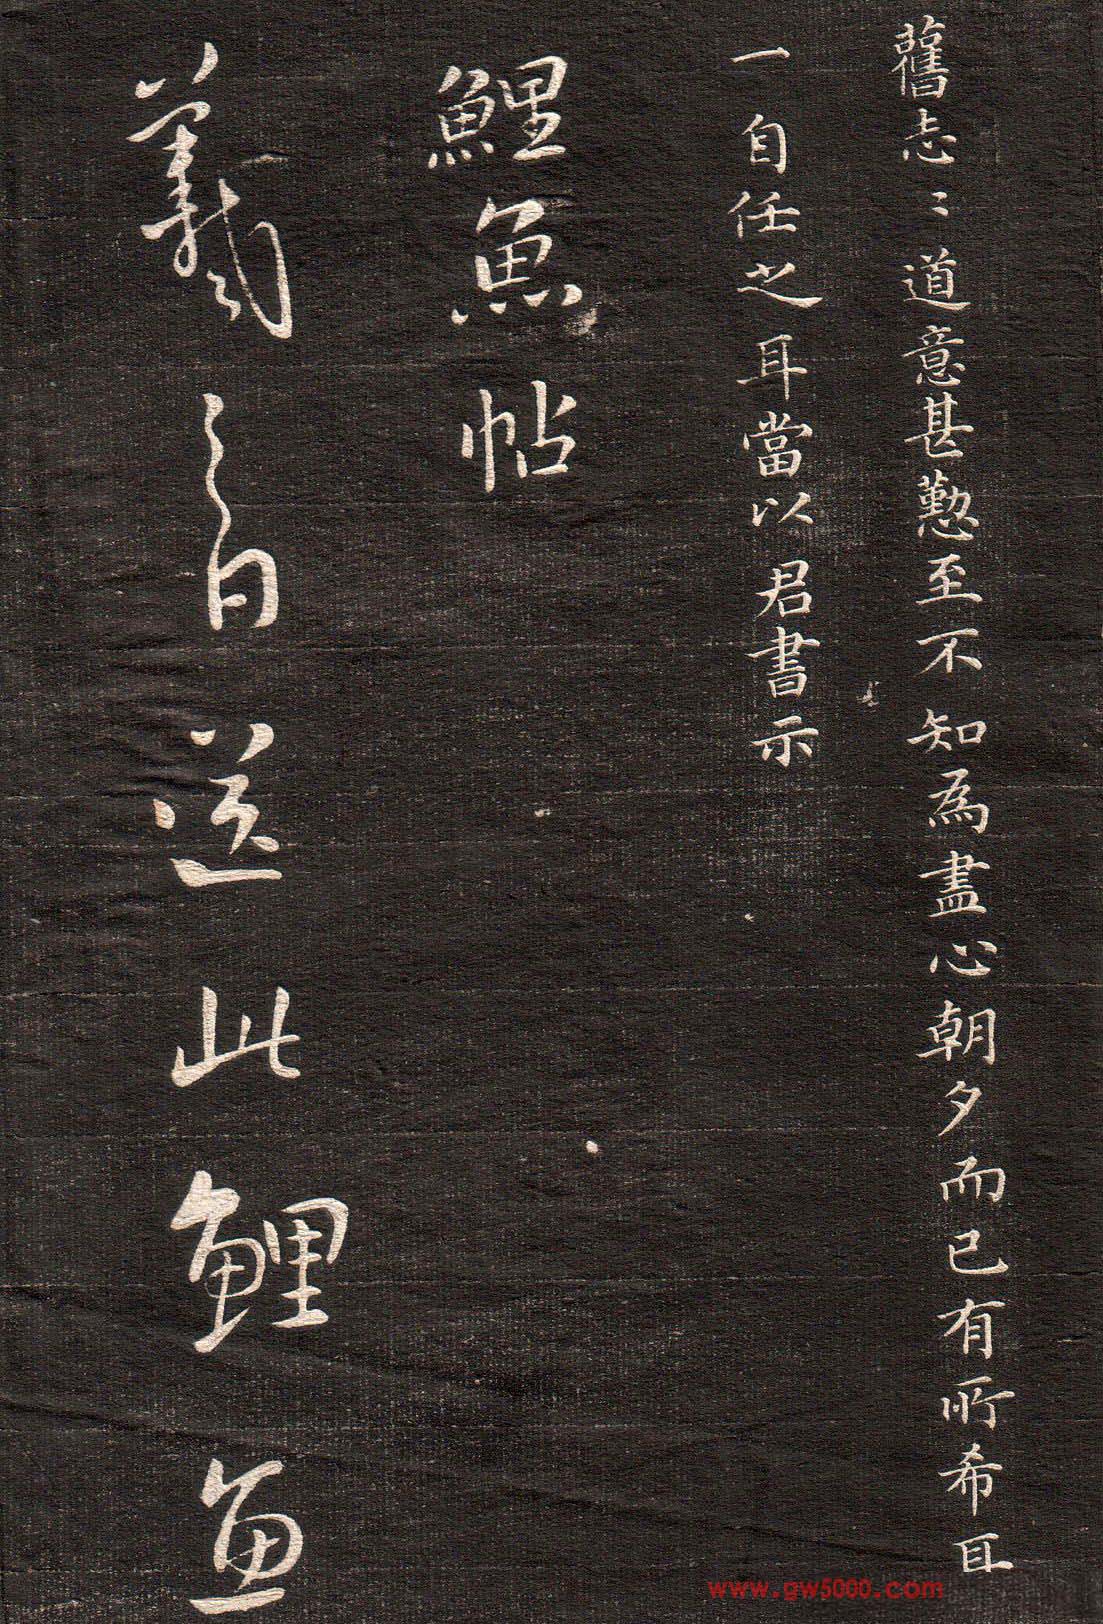 舊忘〻道意甚懃至不知為盡心朝夕而已有所希耳
一自任之耳當以君書示
鯉魚帖
羲之白送此鯉魚
www.gw5000.com